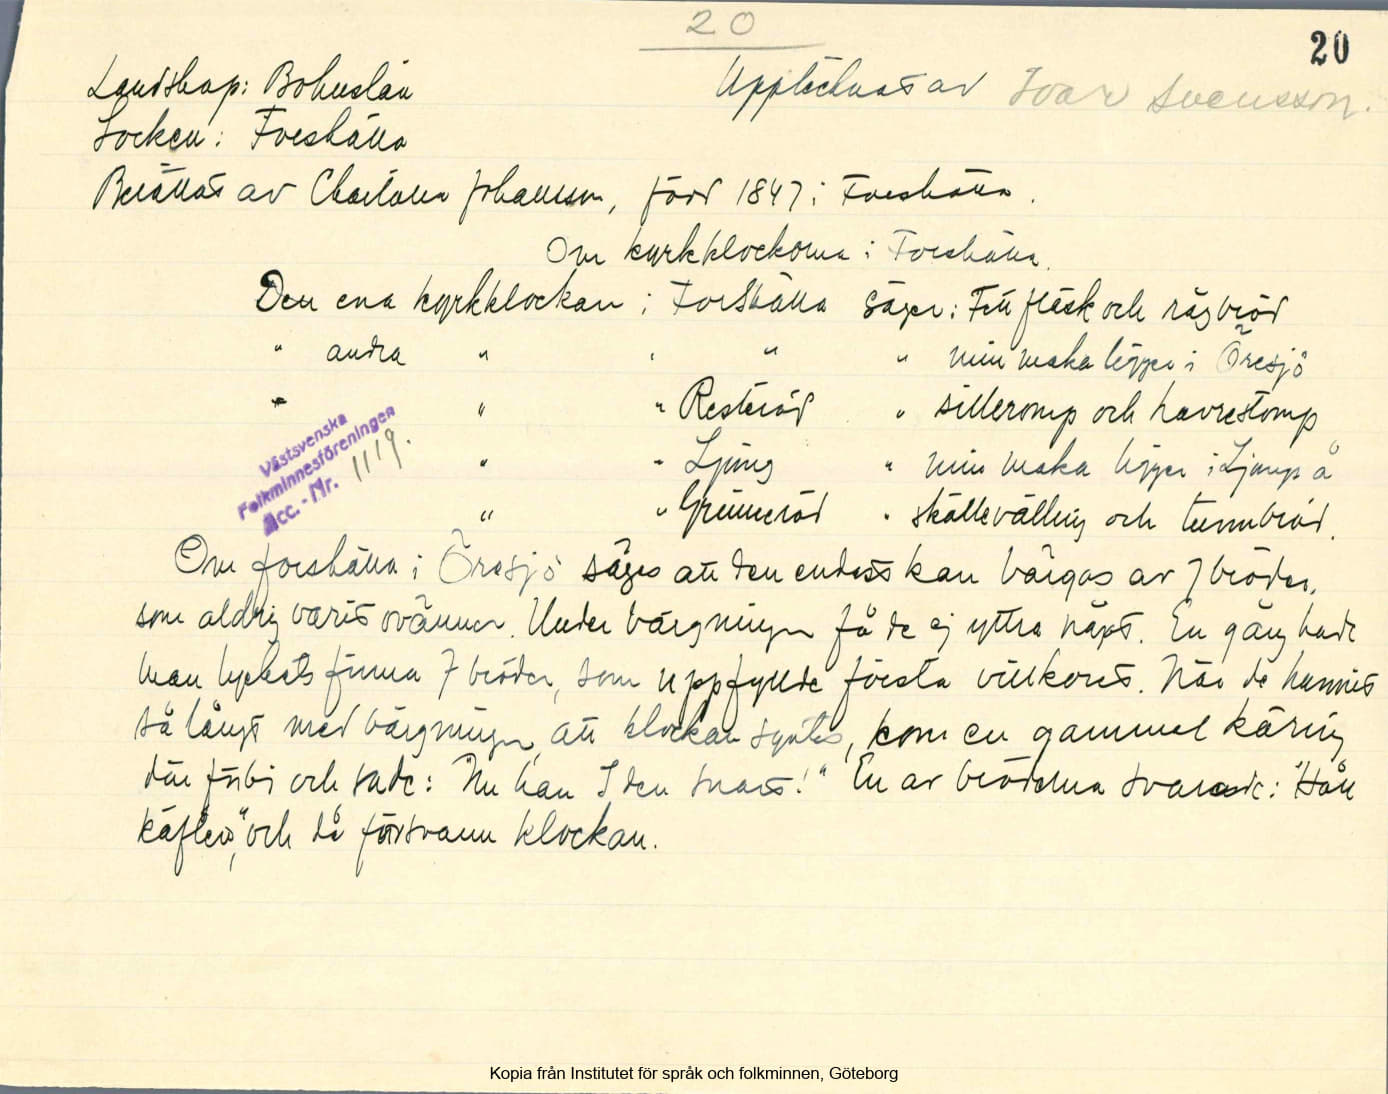 20
20
Landskap: Bohuslän
Upptecknat av Ivar Svensson.
Socken: Foeshälla
Berättat av Charlotta Johansson, född 1847 i Foeshälla.
Om kyrkklockorna i Foeshälla.
Den ena kyrkklockan i Forshälla säger: Fett fläsk och rågbröd
" andra " " " " min maka ligger i Öresjö
" " " Resteröd " silleromp och havrestomp
" " Ljung " min maka ligger i Ljungs å
" " Grinneröd " skållevälling och tunnbröd.
Västsvenska
Folkminnesföreningen
Acc.-Nr. 1119.
Om forshälla i Öresjö säges att den endast kan bärgas av 7 bröder,
som aldrig varit ovänner. Under bärgningen få de ej yttra något. En gång hade
man lyckats finna 7 bröder, som uppfyllde första villkoret. När de hunnit
så långt med bärgningen, att klockan syntes, kom en gammel käring
där förbi och sade: "Nu han I den snart!" En av bröderna svarade: "Håll
käften", och då försvann klockan.
Kopia från Institutet för språk och folkminnen, Göteborg